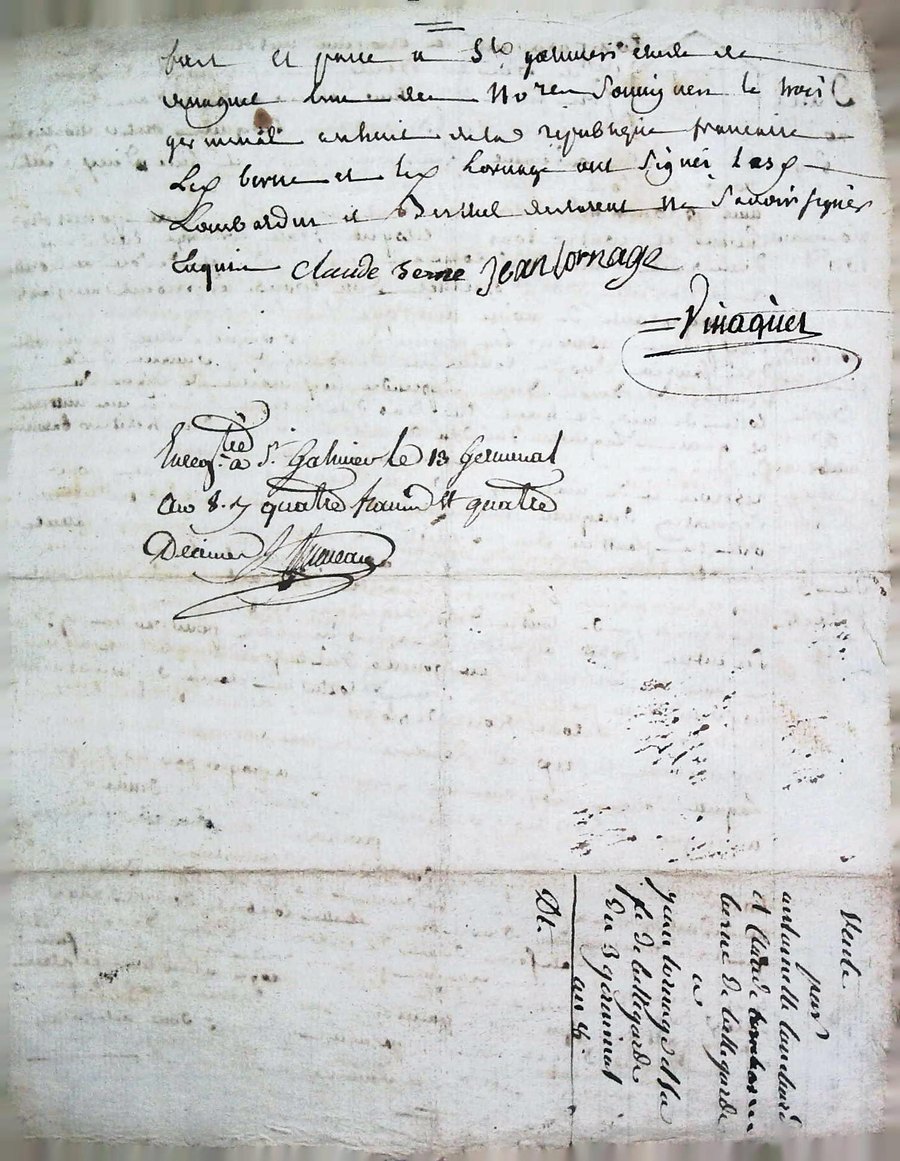 fait et passé a St galmier etude de
vinaguet l'un des Nores Soussignes le trois
germinal an huit de la republique francaise
Les berne et les Cornage ont Signés Las
Lombardin et declarent ne Savoir Signer
Enquis Claude berne jean Cornage
Vinaguet
Enregtré à St Galmier le 13 Germinal
an 8. quatre francs et quatre
Decimes
Vente
par
antoinette
et Claude
berne de bellegarde
a
jean Cornage et sa
fe de bellegarde
Du 3 germinal
an 8.
Dt.